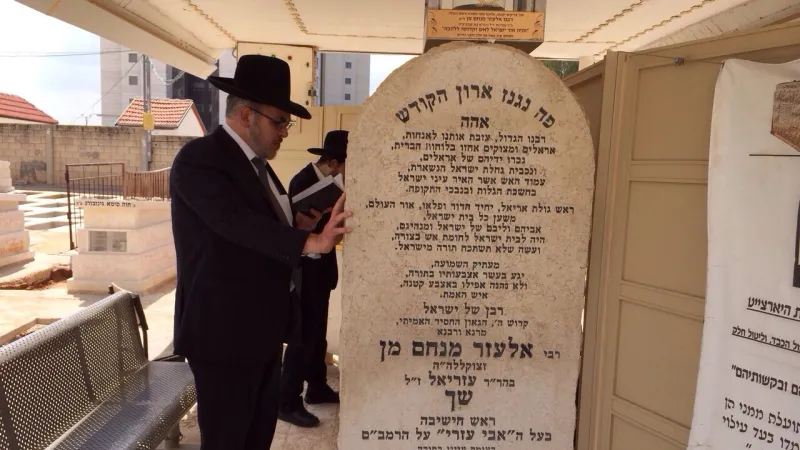 רבנו אלעזר מנחם מן
"והיה אור ישראל לאש וקדושו ללהבה"
פה נגנז ארון הקודש
אהה
רבנו הגדול, עזבת אותנו לאנחות,
אראלים ומצוקים אחזו בלוחות הברית,
גברו ידיהם של אראלים,
ונכבית גחלת ישראל הנשארת,
עמוד האש אשר האיר עיני ישראל
בחשכת הגלות ובנבכי התקופה.
ראש גולת אריאל, יחיד הדור ופלאו, אור העולם,
משען כל בית ישראל,
אביהם וליבם של ישראל ומנהיגם,
היה לבית ישראל לחומת אש בצורה,
ועשה שלא תשתכח תורה מישראל.
מעתיק השמועה,
יגע בעשר אצבעותיו בתורה,
ולא נהנה אפילו באצבע קטנה,
איש האמת.
רבן של ישראל
קדוש ה', הגאון החסיד האמיתי,
מרנא ורבנא
רבי אלעזר מנחם מן
זצוקללה"ה
בהר"ר עזריאל ז"ל
שך
ראש הישיבה
בעל ה"אבי עזרי" על הרמב"ם
ת היארצייט
ל הכבד, וליטול חלק
ם ובקשותיהם"
תועלת ממני הן
מדו בעד עילוי